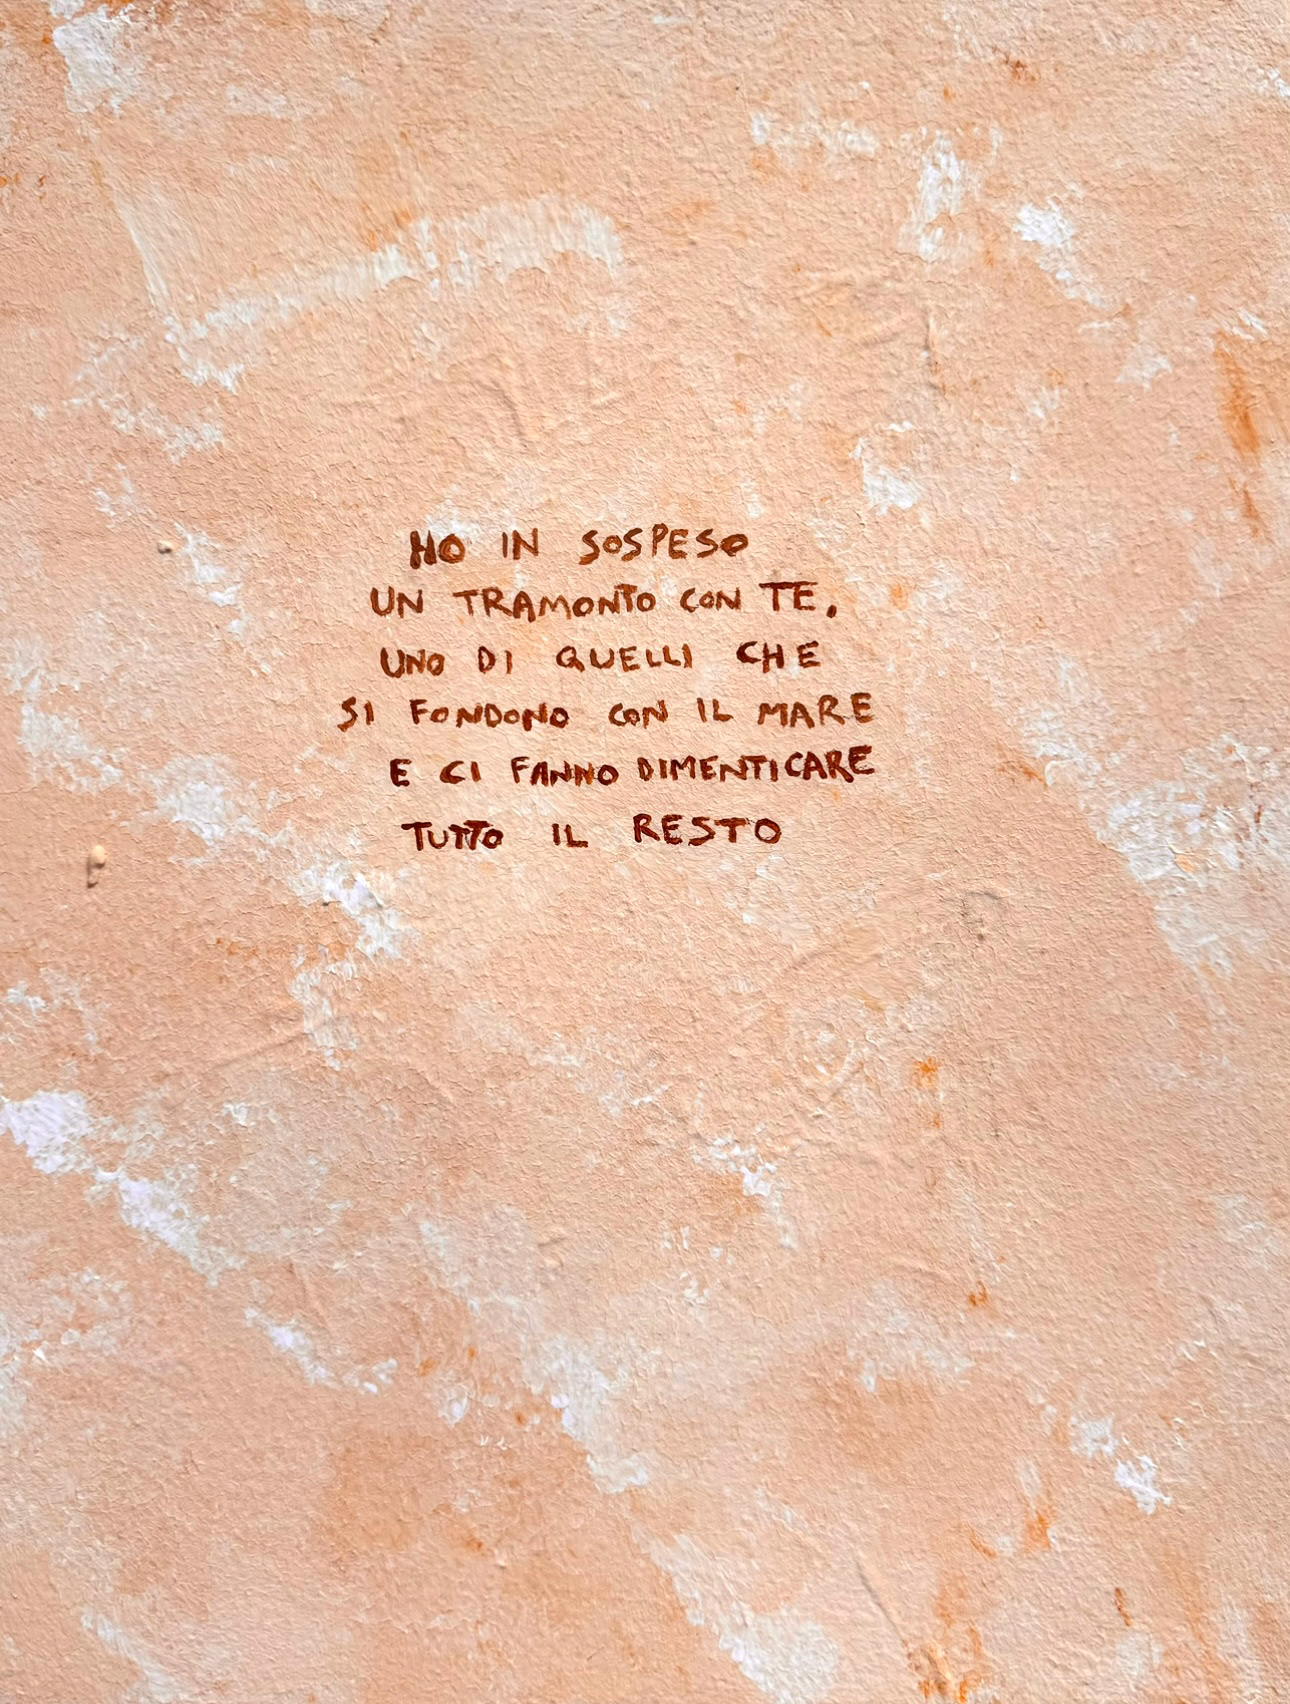 HO IN SOSPESO
UN TRAMONTO CON TE.
UNO DI QUELLI CHE
SI FONDONO CON IL MARE
E CI FANNO DIMENTICARE
TUTTO IL RESTO